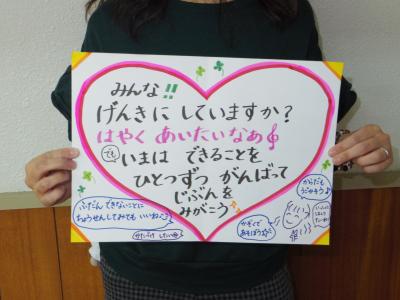 みんな!!
げんきに していますか?
はやく あいたいなあ
でも いまは できることを
ひとつずつ がんばって
じぶんを
みがこう
ふだん できないことに
ちょうせんしてみても いいね
かぞくで
あそぼう
からだも
うごかそう